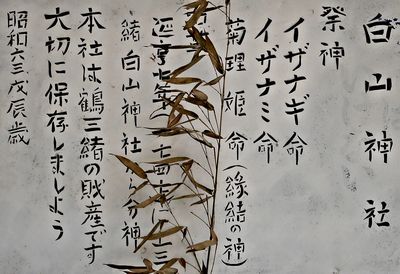 白山神社
祭神
イザナギ命
イザナミ命
菊理姫命(縁結の神)
七年 十四 に三
緒白山神社から分神
本社は鶴三緒の財産です
大切に保存しましょう
昭和六三戊辰歳